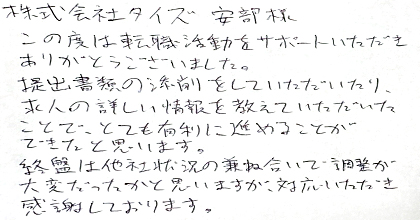 株式会社タイズ 安部様
この度は転職活動をサポートいただき
ありがとうございました。
提出書類の添削をしていただいたり、
求人の詳しい情報を教えていただいた
ことで、とても有利に進めることが
できたと思います。
終盤は他社状況の兼ね合いで調整が
大変だったかと思いますが、対応いただき
感謝しております。